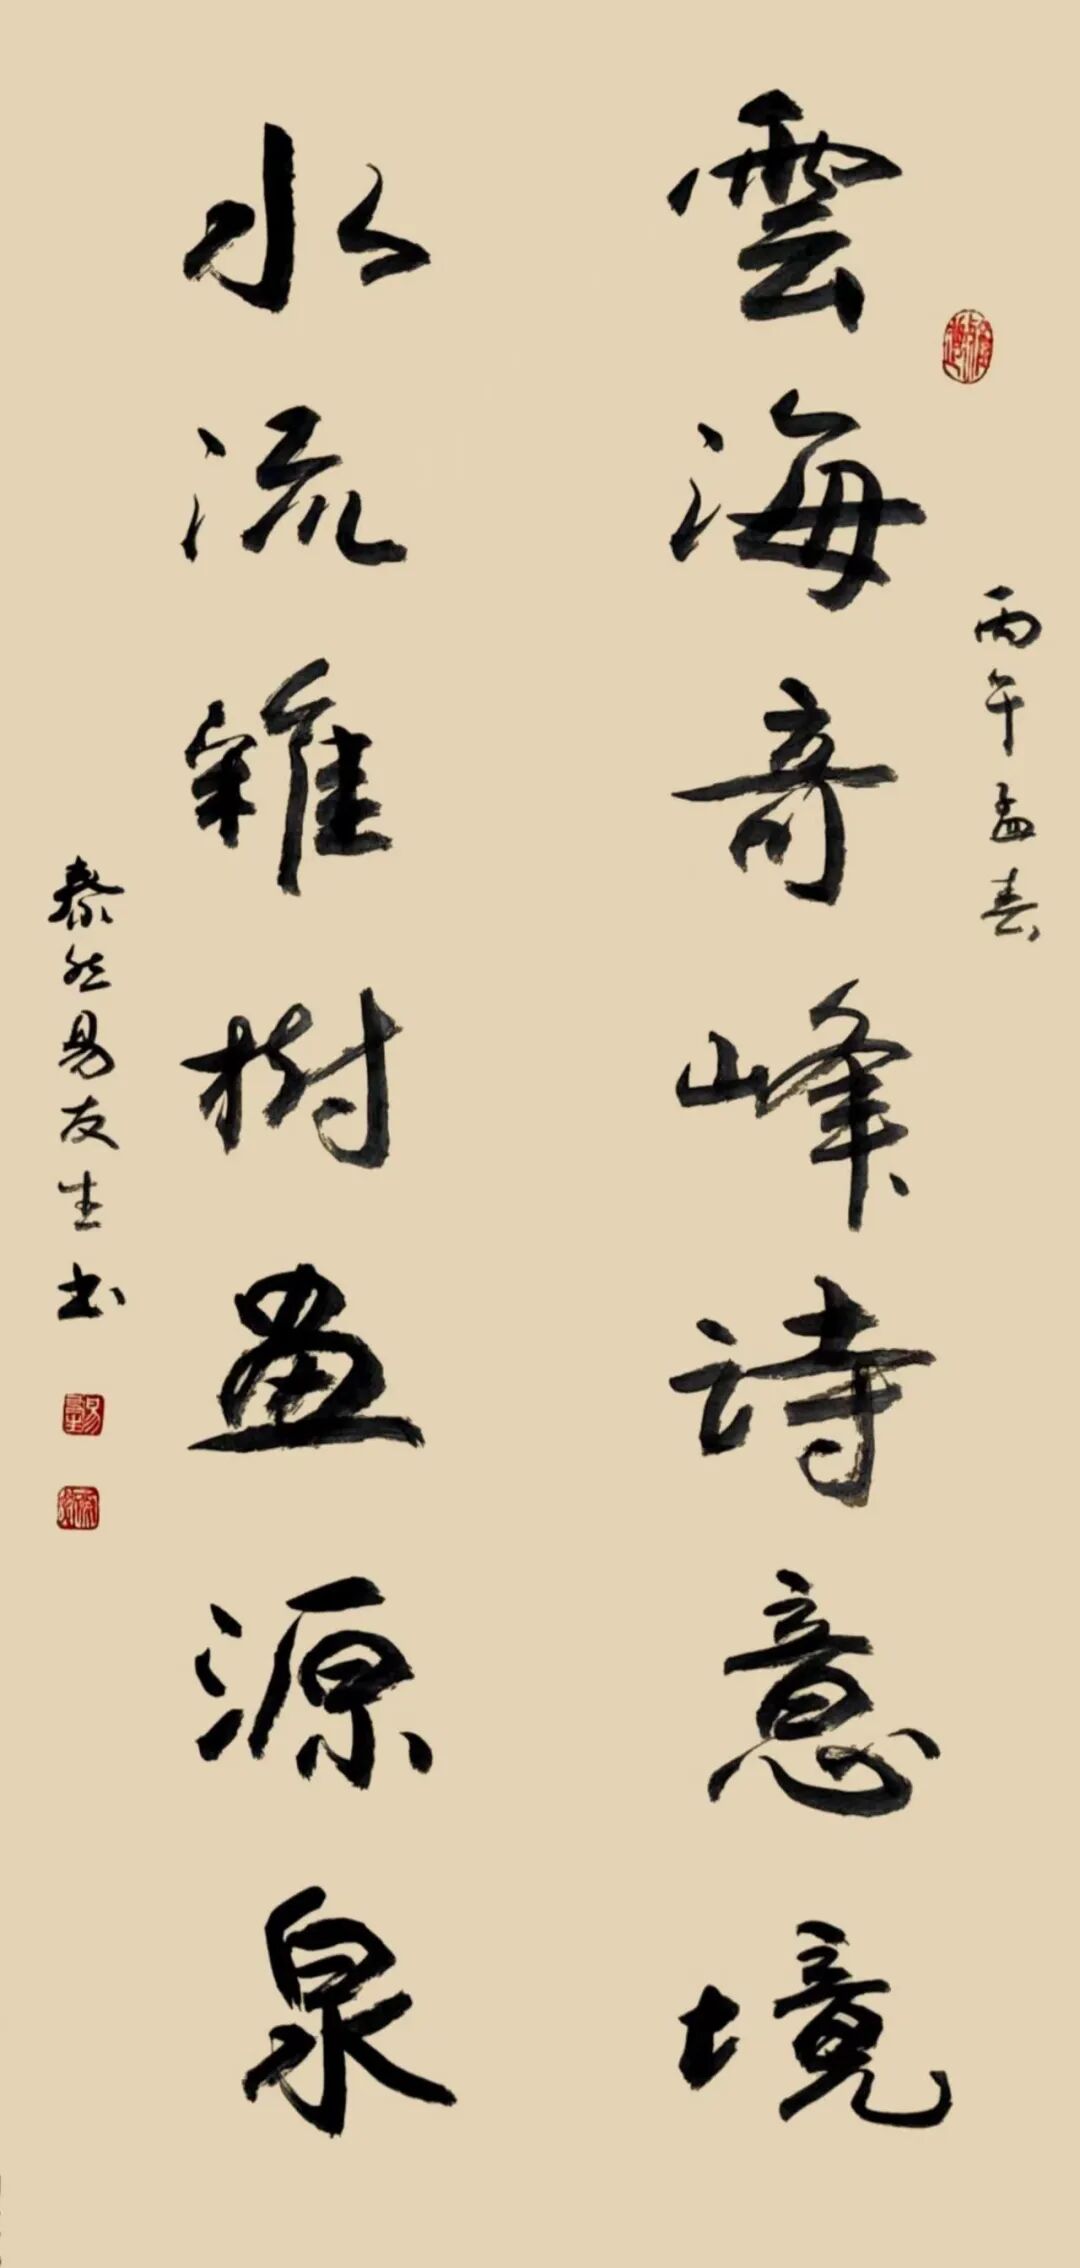 丙午孟春
雲海奇峰詩意境
水流雜樹畫源泉
泰然易友生书